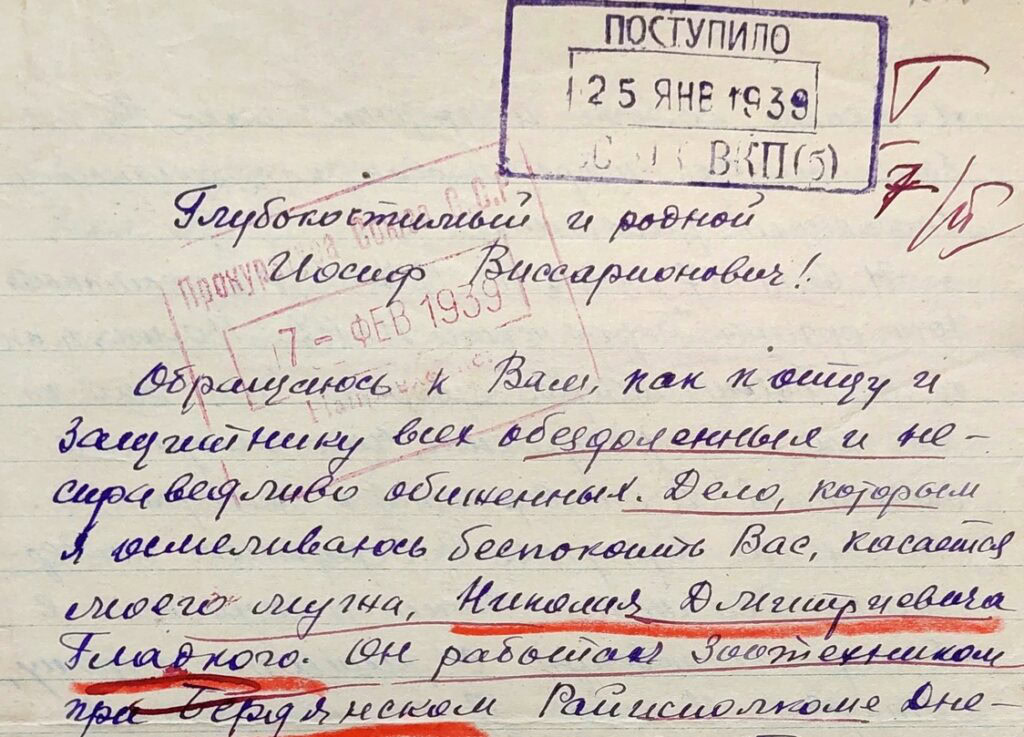 ПОСТУПИЛО
25 ЯНВ 1939
ВКП(б)
7/III
Глубокочтимый и родной
Иосиф Виссарионович!
Прокуратура Союза С.С.Р
17 - ФЕВ 1939
Обращаюсь к Вам, как к отцу и
защитнику всех обездоленных и не-
справедливо обиженных. Дело, которым
я осмеливаюсь беспокоить Вас, касается
моего мужа, Николая Дмитриевича
Гладкого. Он работал Зоотехником
при Бердянском Райисполкоме Дне-